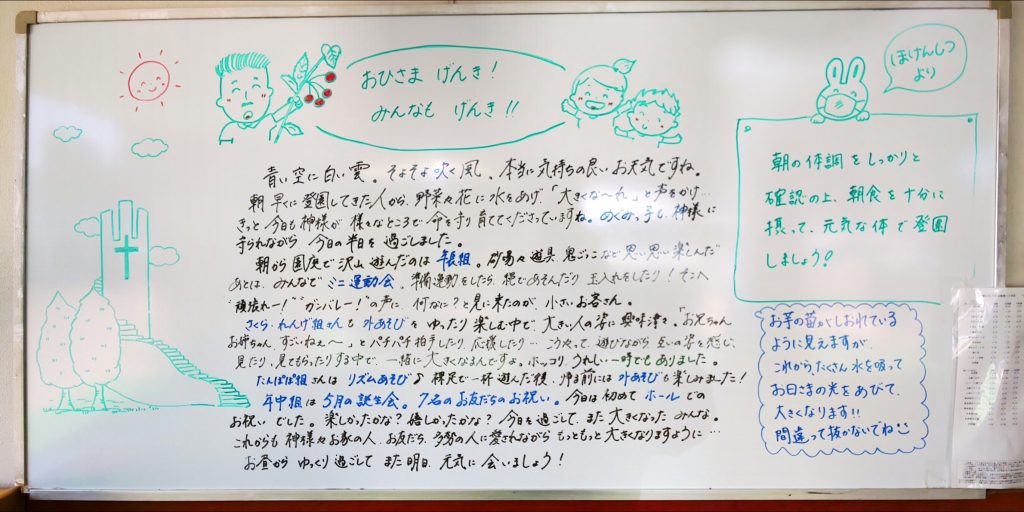 おひさま げんき！
みんなも げんき！！
ほけんしつ
より
青い空に白い雲。そよそよ吹く風。本当に気持ちの良いお天気ですね。
朝早くに登園してきた人から、野菜や花に水をあげ、「大きくな〜れ」と声をかけ…
きっと今日も神様が様々なところで命を守り育ててくださっていますね。めぐみっ子も、神様に
守られながら 今日の半日を過ごしました。
朝から園庭で沢山遊んだのは 年長組。砂場や遊具 鬼ごっこなど思い思い楽しんだ
あとは、みんなで ミニ運動会。準備運動をしたら、裸であそんだり 玉入れをしたり！そこへ
"頑張れー！" "ガンバレー！"の声に、何なに？と見に来たのが、小さいお客さん。
さくら・れんげ組さんも 外あそびを ゆったり楽しむ中で、大きい人の姿に興味津々。「お兄ちゃん
お姉ちゃん すごいねぇ〜」とパチパチ拍手したり、応援したり… こうやって 遊びながら 互いの姿を感じ、
見たり、見てもらったりする中で、一緒に大きくなるんですよ。ホッコリ うれしい一時でもありました。
たんぽぽ組さんは リズムあそび♪ 裸足で一杯遊んだ後、帰る前には 外あそびも楽しみました！
年中組は 5月の誕生会。7名のお友だちのお祝い。今日は初めて ホールでの
お祝いでした。楽しかったかな？嬉しかったかな？今日を過ごして、また大きくなった みんな。
これからも 神様やお家の人、お友だち、多勢の人に愛されながら もっともっと大きくなりますように…
お昼から ゆっくり過ごして また明日、元気に会いましょう！
朝の体調をしっかりと
確認の上、朝食を十分に
摂って、元気な体で登園
しましょう！
お芋の苗がしおれている
ように見えますが、
これからたくさん水を吸って
お日さまの光をあびて、
大きくなります！！
間違って抜かないでね